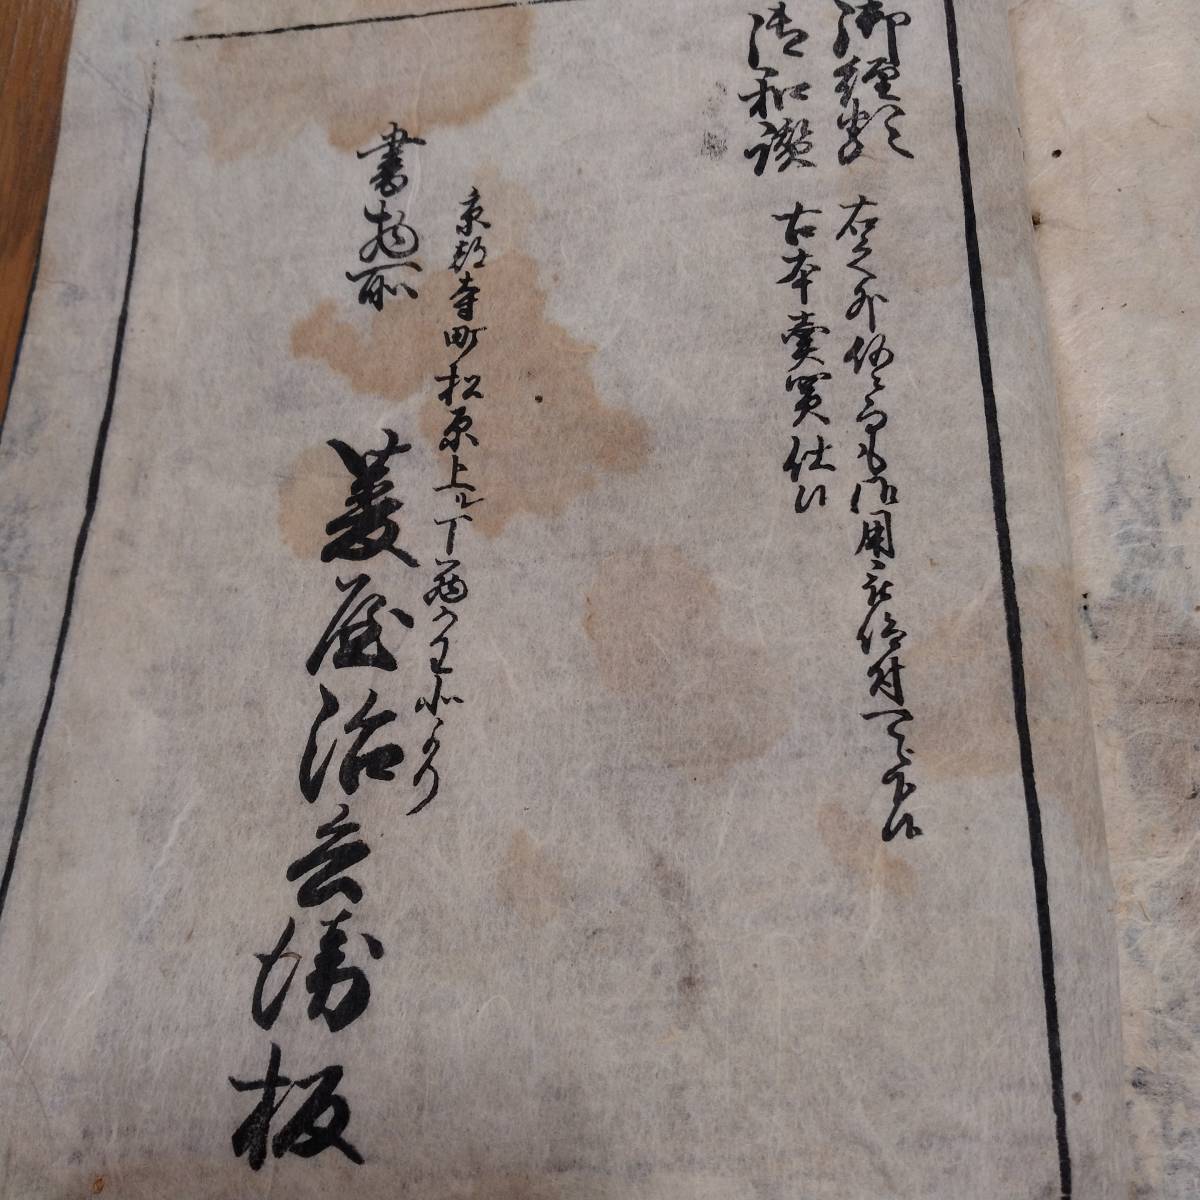 御経類
御和讃
右之外何ニ而も御用被仰付可被下候
古本売買仕候
京都寺町松原上ル丁
書物所
菱屋治兵衛板